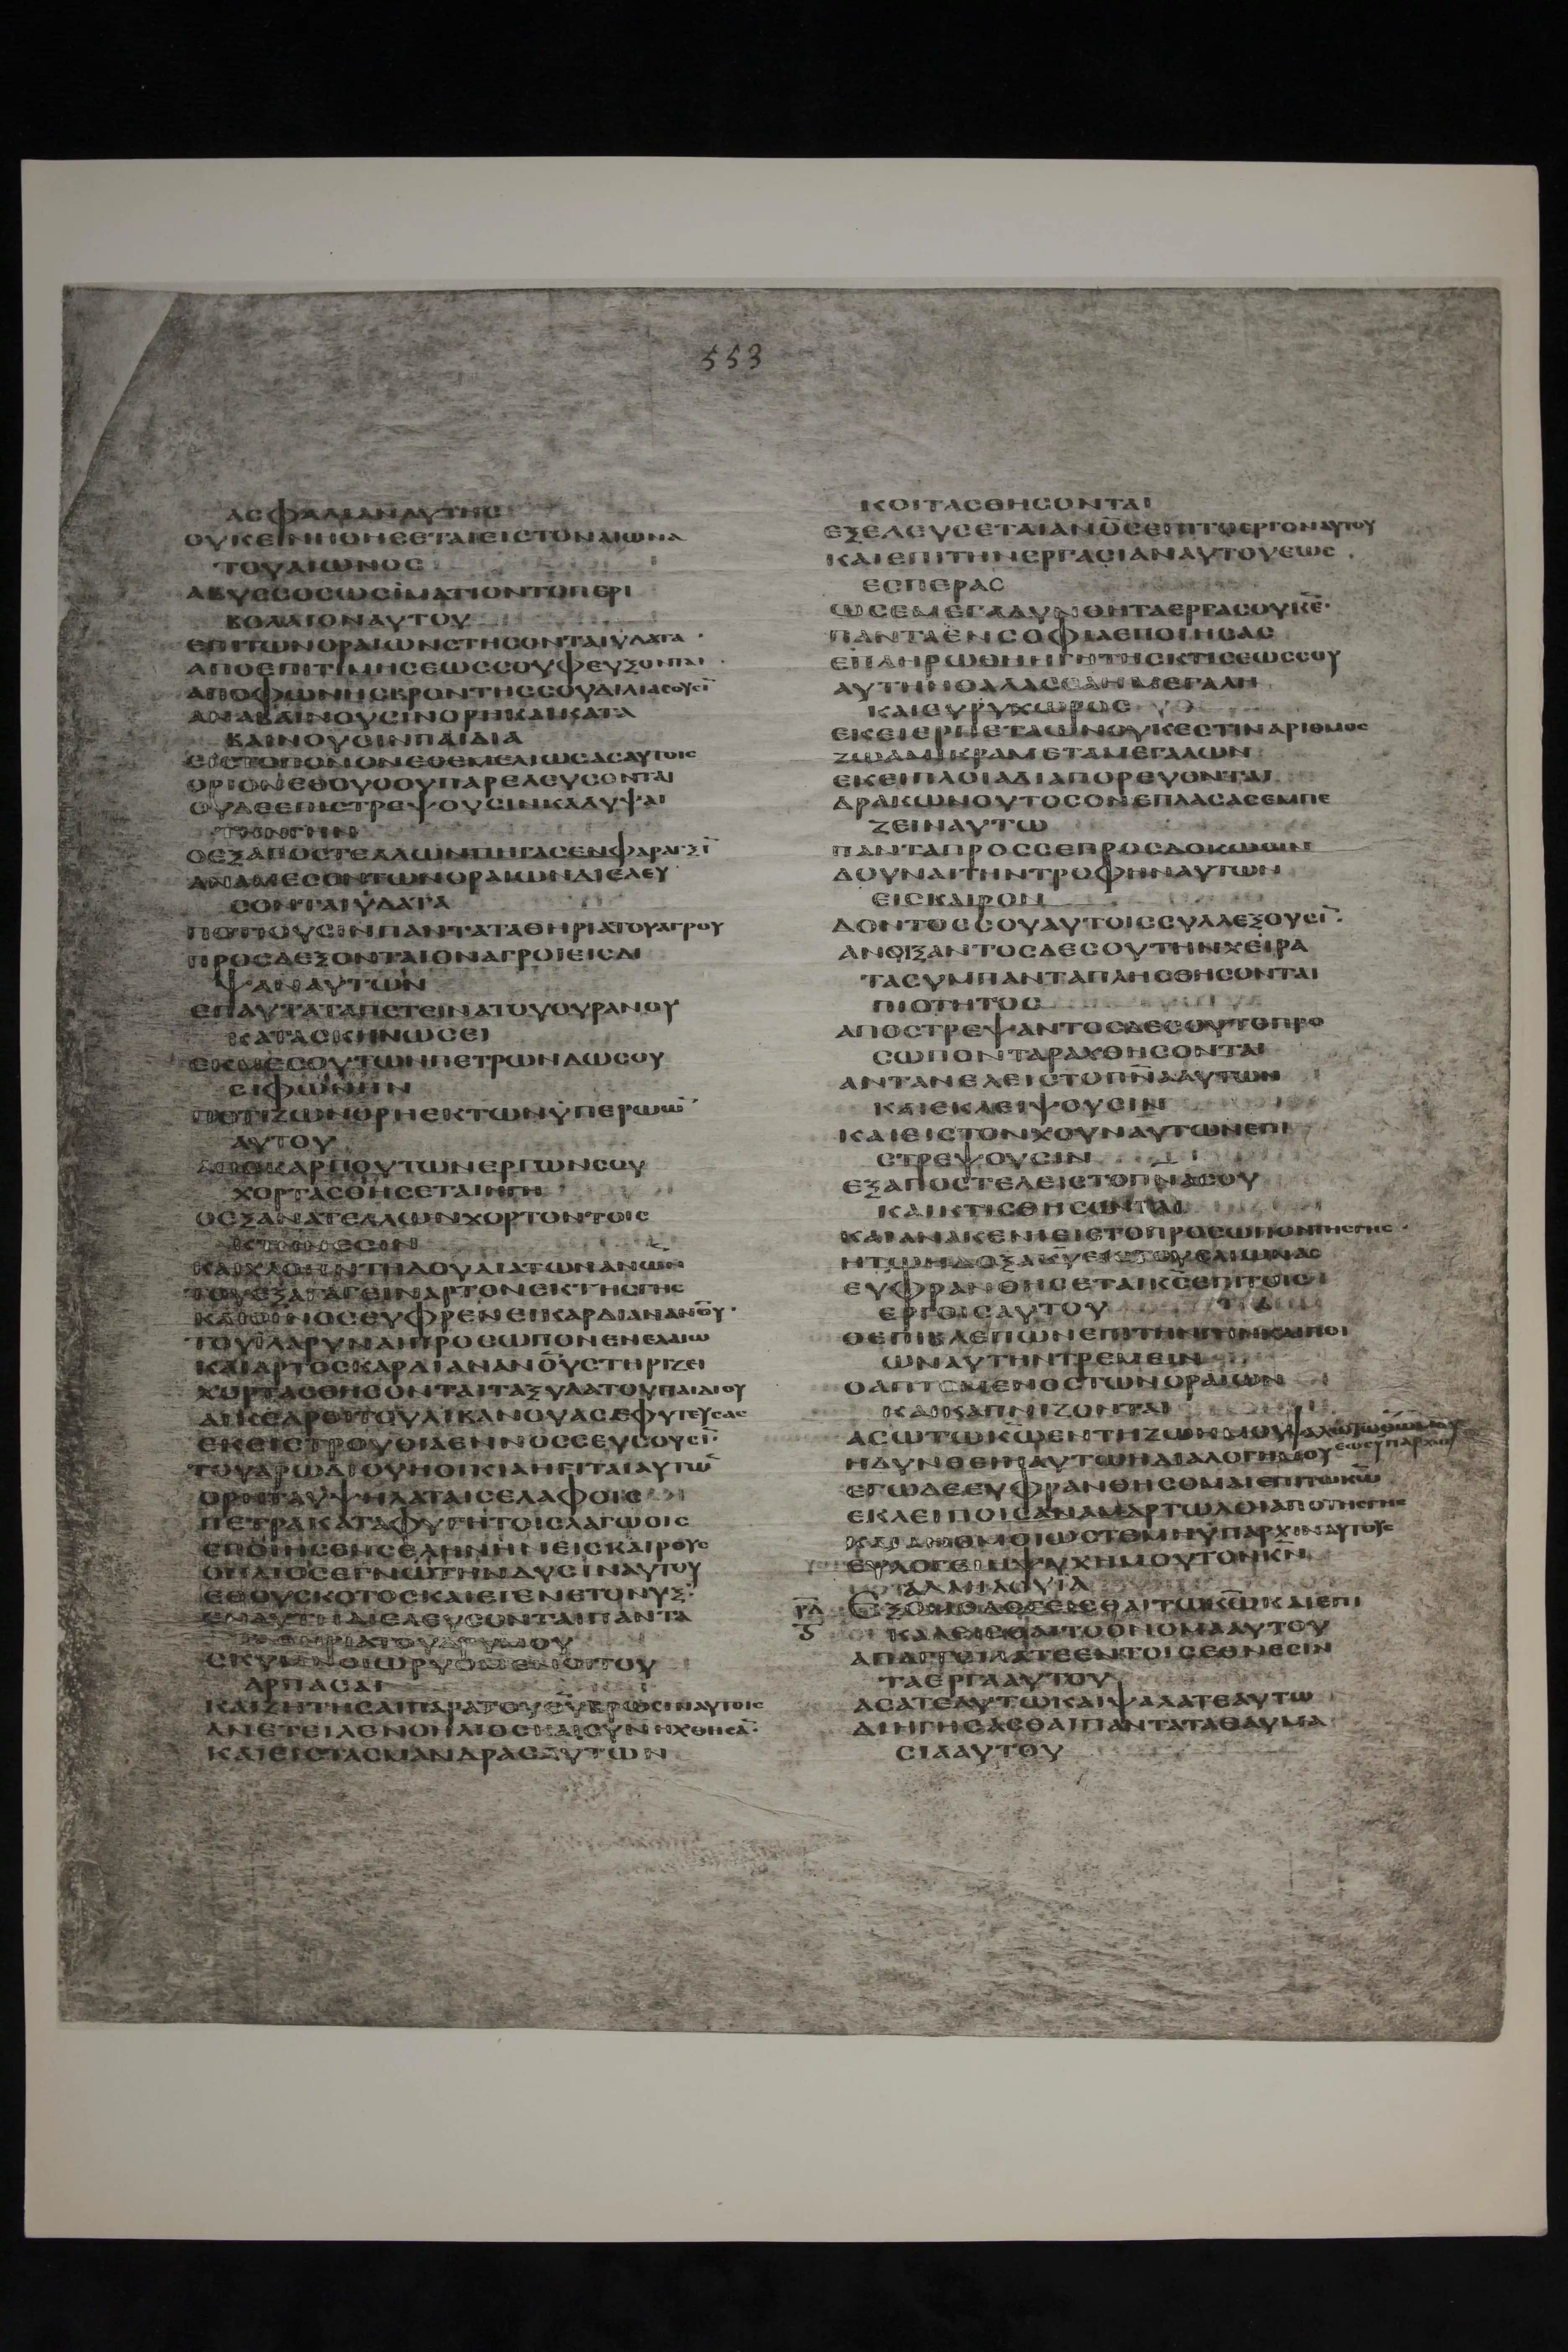 553
ΑСΦΑΛΙΑΝΑΥΤΗС
ΟΥΚ ΕΙСΤΟΝΑΙΩΝΑ
ΤΟΥΑΙΩΝΟС
ΑΒΥССΟСΩСΙΜΑΤΙΟΝΤΟΠΕΡΙ
ΒΟΛΑΙΟΝΑΥΤΟΥ
ΕΠΙΤΩΝΟΡΑΙΩΝСΤΗСΟΝΤΑΙΥΔΑΤΑ
ΑΠΟΕΠΙΤΙΜΗСΕΩССΟΥΦΕΥΞΟΝΤΑΙ
ΑΠΟΦΩΝΗСΒΡΟΝΤΗССΟΥΔΙΛΙΑСΟΥСΙ̅
ΑΝΑΒΑΙΝΟΥСΙΝΟΡΗΚΑΙΚΑΤΑ
ΒΑΙΝΟΥСΙΝΠΑΙΔΙΑ
ΕΙСΤΟΠΟΝΟΝΕΘΕΜΕΛΙΩСΑСΑΥΤΟΙС
ΟΡΙΟΝΕΘΟΥΟΟΥΠΑΡΕΛΕΥСΟΝΤΑΙ
ΟΥΔΕΕΠΙСΤΡΕΨΟΥСΙΝΚΑΛΥΨΑΙ
ΤΗΝΓΗΝ
ΟΕΞΑΠΟСΤΕΛΛΩΝΠΗΓΑСΕΝΦΑΡΑΓΞΙ̅
ΑΝΑΜΕСΟΝΤΩΝΟΡΑΙΩΝΔΙΕΛΕΥ
СΟΝΤΑΙΥΔΑΤΑ
ΠΟΤΙΟΥСΙΝΠΑΝΤΑΤΑΘΗΡΙΑΤΟΥΑΓΡΟΥ
ΠΡΟСΔΕΞΟΝΤΑΙΟΝΑΓΡΟΙΕΙСΔΙ
ΨΑΝΑΥΤΩΝ
ΕΠΑΥΤΑΤΑΠΕΤΕΙΝΑΤΟΥΟΥΡΑΝΟΥ
ΚΑΤΑСΚΗΝΩСΕΙ
ΕΚΜΕСΟΥΤΩΝΠΕΤΡΩΝΔΩСΟΥ
СΙΦΩΝΗΝ
ΠΟΤΙΖΩΝΟΡΗΕΚΤΩΝΥΠΕΡΩΩ̅
ΑΥΤΟΥ
ΑΠΟΚΑΡΠΟΥΤΩΝΕΡΓΩΝСΟΥ
ΧΟΡΤΑСΘΗСΕΤΑΙΗΓΗ
ΟΕΞΑΝΑΤΕΛΛΩΝΧΟΡΤΟΝΤΟΙС
ΚΤΗΝΕСΙΝ
ΚΑΙΧΛΟΗΝΤΗΔΟΥΛΙΑΤΩΝΑΝΩΝ
ΤΟΥΕΞΑΓΑΓΕΙΝΑΡΤΟΝΕΚΤΗСΓΗС
ΚΑΙΟΙΝΟСΕΥΦΡΕΝΕΙΚΑΡΔΙΑΝΑΝΟΥ
ΤΟΥΙΛΑΡΥΝΑΙΠΡΟСΩΠΟΝΕΝΕΛΑΙΩ
ΚΑΙΑΡΤΟСΚΑΡΔΙΑΝΑΝΟΥСΤΗΡΙΖΕΙ
ΧΟΡΤΑСΘΗСΟΝΤΑΙΤΑΞΥΛΑΤΟΥΠΑΙΔΙΟΥ
ΑΙΚΕΔΡΟΙΤΟΥΛΙΒΑΝΟΥΑСΕΦΥΤΕΥСΑС
ΕΚΕΙСΤΡΟΥΘΙΑΕΝΝΟССΕΥСΟΥСΙ̅
ΤΟΥΑΡΩΔΙΟΥΗΟΙΚΙΑΗΓΙΤΑΙΑΥΤΩ̅
ΟΡΗΤΑΥΨΗΛΑΤΑΙСΕΛΑΦΟΙС
ΠΕΤΡΑΚΑΤΑΦΥΓΗΤΟΙСΛΑΓΩΟΙС
ΕΠΟΙΗСΕΝСΕΛΗΝΗΝΕΙСΚΑΙΡΟΥС
ΟΗΛΙΟСΕΓΝΩΤΗΝΔΥСΙΝΑΥΤΟΥ
ΕΘΟΥСΚΟΤΟСΚΑΙΕΓΕΝΕΤΟΝΥΞ
ΕΝΑΥΤΗΔΙΕΛΕΥСΟΝΤΑΙΠΑΝΤΑ
ΤΑΘΗΡΙΑΤΟΥΔΡΥΜΟΥ
СΚΥΜΝΟΙΩΡΥΟΜΕΝΟΙΤΟΥ
ΑΡΠΑСΑΙ
ΚΑΙΖΗΤΗСΑΙΠΑΡΑΤΟΥΘΥΒΡΩСΙΝΑΥΤΟΙС
ΑΝΕΤΕΙΛΕΝΟΗΛΙΟСΚΑΙСΥΝΗΧΘΗСΑ̅
ΚΑΙΕΙСΤΑСΜΑΝΔΡΑСΑΥΤΩΝ
ΚΟΙΤΑСΘΗСΟΝΤΑΙ
ΕΞΕΛΕΥСΕΤΑΙΑΝΟСΕΠΙΤΟΕΡΓΟΝΑΥΤΟΥ
ΚΑΙΕΠΙΤΗΝΕΡΓΑСΙΑΝΑΥΤΟΥΕΩС
ΕСΠΕΡΑС
ΩСΕΜΕΓΑΛΥΝΘΗΤΑΕΡΓΑСΟΥΚΕ̅
ΠΑΝΤΑΕΝСΟΦΙΑΕΠΟΙΗСΑС
ΕΠΛΗΡΩΘΗΗΓΗΤΗСΚΤΙСΕΩССΟΥ
ΑΥΤΗΗΘΑΛΑССΑΗΜΕΓΑΛΗ
ΚΑΙΕΥΡΥΧΩΡΟС
ΕΚΕΙΕΡΠΕΤΑΩΝΟΥΚΕСΤΙΝΑΡΙΘΜΟС
ΖΩΑΜΙΚΡΑΜΕΤΑΜΕΓΑΛΩΝ
ΕΚΕΙΠΛΟΙΑΔΙΑΠΟΡΕΥΟΝΤΑΙ
ΔΡΑΚΩΝΟΥΤΟСΟΝΕΠΛΑСΑСΕΜΠΕ
ΖΕΙΝΑΥΤΩ
ΠΑΝΤΑΠΡΟССΕΠΡΟСΔΟΚΩСΙΝ
ΔΟΥΝΑΙΤΗΝΤΡΟΦΗΝΑΥΤΩΝ
ΕΙСΚΑΙΡΟΝ
ΔΟΝΤΟССΟΥΑΥΤΟΙССΥΛΛΕΞΟΥСΙ̅
ΑΝΟΙΞΑΝΤΟСΔΕСΟΥΤΗΝΧΕΙΡΑ
ΤΑСΥΜΠΑΝΤΑΠΛΗСΘΗСΟΝΤΑΙ
ΠΙΟΤΗΤΟС
ΑΠΟСΤΡΕΨΑΝΤΟСΔΕСΟΥΤΟΠΡΟ
СΩΠΟΝΤΑΡΑΧΘΗСΟΝΤΑΙ
ΑΝΤΑΝΕΛΕΙСΤΟΠΝΑΑΥΤΩΝ
ΚΑΙΕΚΛΕΙΨΟΥСΙΝ
ΚΑΙΕΙСΤΟΝΧΟΥΝΑΥΤΩΝΕΠΙ
СΤΡΕΨΟΥСΙΝ
ΕΞΑΠΟСΤΕΛΕΙСΤΟΠΝΑСΟΥ
ΚΑΙΚΤΙСΘΗСΟΝΤΑΙ
ΚΑΙΑΝΑΚΕΝΙΕΙСΤΟΠΡΟСΩΠΟΝΤΗСΓΗС
ΗΤΩΗΔΟΞΑΚΥΕΙСΤΟΥСΑΙΩΝΑС
ΕΥΦΡΑΝΘΗСΕΤΑΙΚСΕΠΙΤΟΙС
ΕΡΓΟΙСΑΥΤΟΥ
ΟΕΠΙΒΛΕΠΩΝΕΠΙΤΗΝΓΗΝΚΑΙΠΟΙ
ΩΝΑΥΤΗΝΤΡΕΜΕΙΝ
ΟΑΠΤΟΜΕΝΟСΤΩΝΟΡΑΙΩΝ
ΚΑΙΚΑΠΝΙΖΟΝΤΑΙ
ΑСΩΤΩΚΩΕΝΤΗΖΩΗΜΟΥΨΑΛΩΤΩΘΩΜΟΥ
ΕΩСΥΠΑΡΧΩ
ΗΔΥΝΘΕΙΗΑΥΤΩΗΔΙΑΛΟΓΗΜΟΥ
ΕΓΩΔΕΕΥΦΡΑΝΘΗСΟΜΑΙΕΠΙΤΩΚΩ
ΕΚΛΕΙΠΟΙСΑΝΑΜΑΡΤΩΛΟΙΑΠΟΤΗСΓΗС
ΚΑΙΑΝΟΜΟΙΩСΤΕΜΗΥΠΑΡΧΙΝΑΥΤΟΥС
ΕΥΛΟΓΕΙΗΨΥΧΗΜΟΥΤΟΝΚΝ
ΑΛΛΗΛΟΥΙΑ
ΡΔ ΕΞΟΜΟΛΟΓΕΙСΘΑΙΤΩΚΩΚΑΙΕΠΙ
ΚΑΛΕΙСΘΑΙΤΟΟΝΟΜΑΑΥΤΟΥ
ΑΠΑΓΓΙΛΑΤΕΕΝΤΟΙСΕΘΝΕСΙΝ
ΤΑΕΡΓΑΑΥΤΟΥ
ΑСΑΤΕΑΥΤΩΚΑΙΨΑΛΑΤΕΑΥΤΩ
ΔΙΗΓΗСΑСΘΑΙΠΑΝΤΑΤΑΘΑΥΜΑ
СΙΑΑΥΤΟΥ